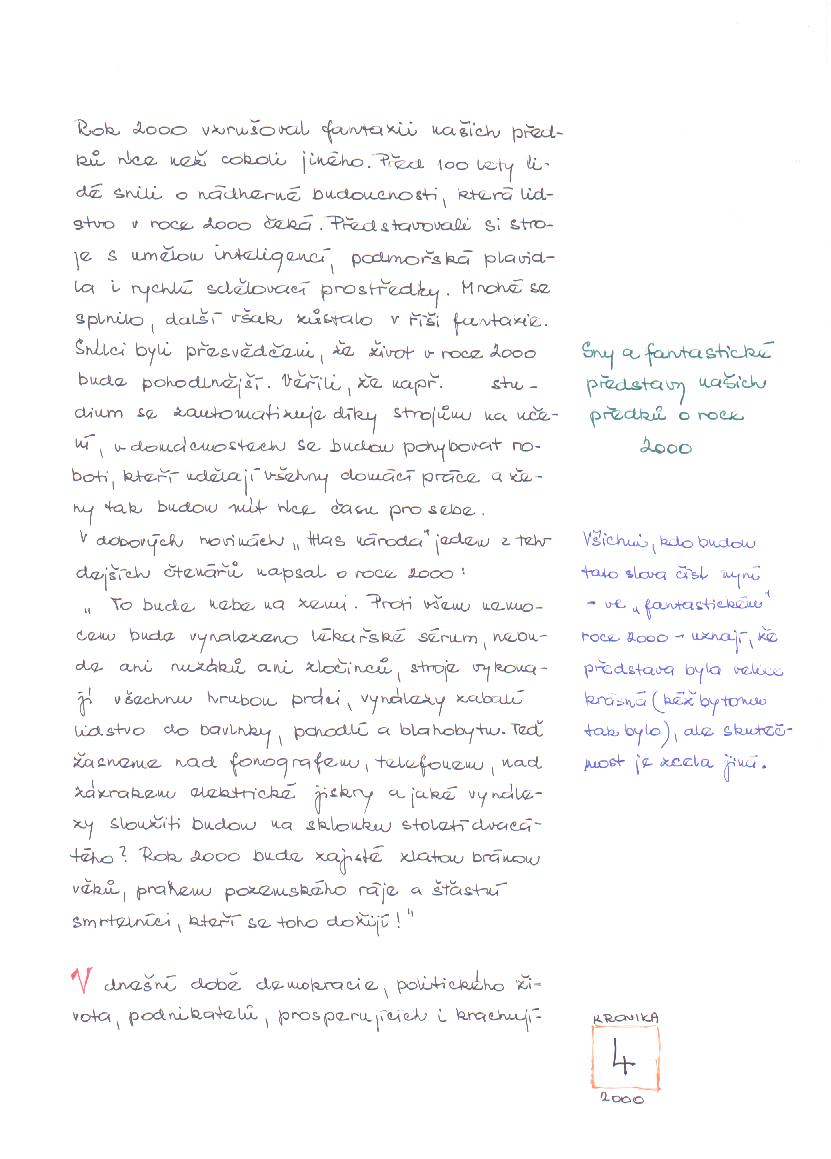 Rok 2000 vzrušoval fantazii našich před-
ků více než cokoli jiného. Před 100 lety li-
dé snili o nádherné budoucnosti, která lid-
stvo v roce 2000 čeká. Představovali si stro-
je s umělou inteligencí, podmořská plavid-
la i rychlé sdělovací prostředky. Mnohé se
splnilo, další však zůstalo v říši fantazie.
Snílci byli přesvědčeni, že život v roce 2000
bude pohodlnější. Věřili, že např. stu-
dium se zautomatizuje díky strojům na uče-
ní, v domácnostech se budou pohybovat ro-
boti, kteří udělají všechny domácí práce a že-
ny tak budou mít více času pro sebe.
V dobových novinách „Hlas národa" jeden z teh-
dejších čtenářů napsal o roce 2000:
„To bude nebe na zemi. Proti všem nemo-
cem bude vynalezeno lékařské sérum, nebu-
de ani nuzáků ani zločinců, stroje vykona-
jí všechnu hrubou práci, vynálezy zabalí
lidstvo do bavlnky, pohodlí a blahobytu. Teď
žasneme nad fonografem, telefonem, nad
zázrakem elektrické jiskry a jaké vynále-
zy sloužiti budou na sklonku století dvacá-
tého? Rok 2000 bude zajisté zlatou bránou
věků, prahem pozemského ráje a šťastní
smrtelníci, kteří se toho dožijí!"
V dnešní době demokracie, politického ži-
vota, podnikatelů, prosperujících i krachují-
Sny a fantastické
představy našich
předků o roce
2000
Všichni, kdo budou
tato slova číst nyní
- ve „fantastickém"
roce 2000 - uznají, že
představa byla velice
krásná (kéž by tomu
tak bylo), ale skuteč-
nost je zcela jiná.
KRONIKA
4
2000